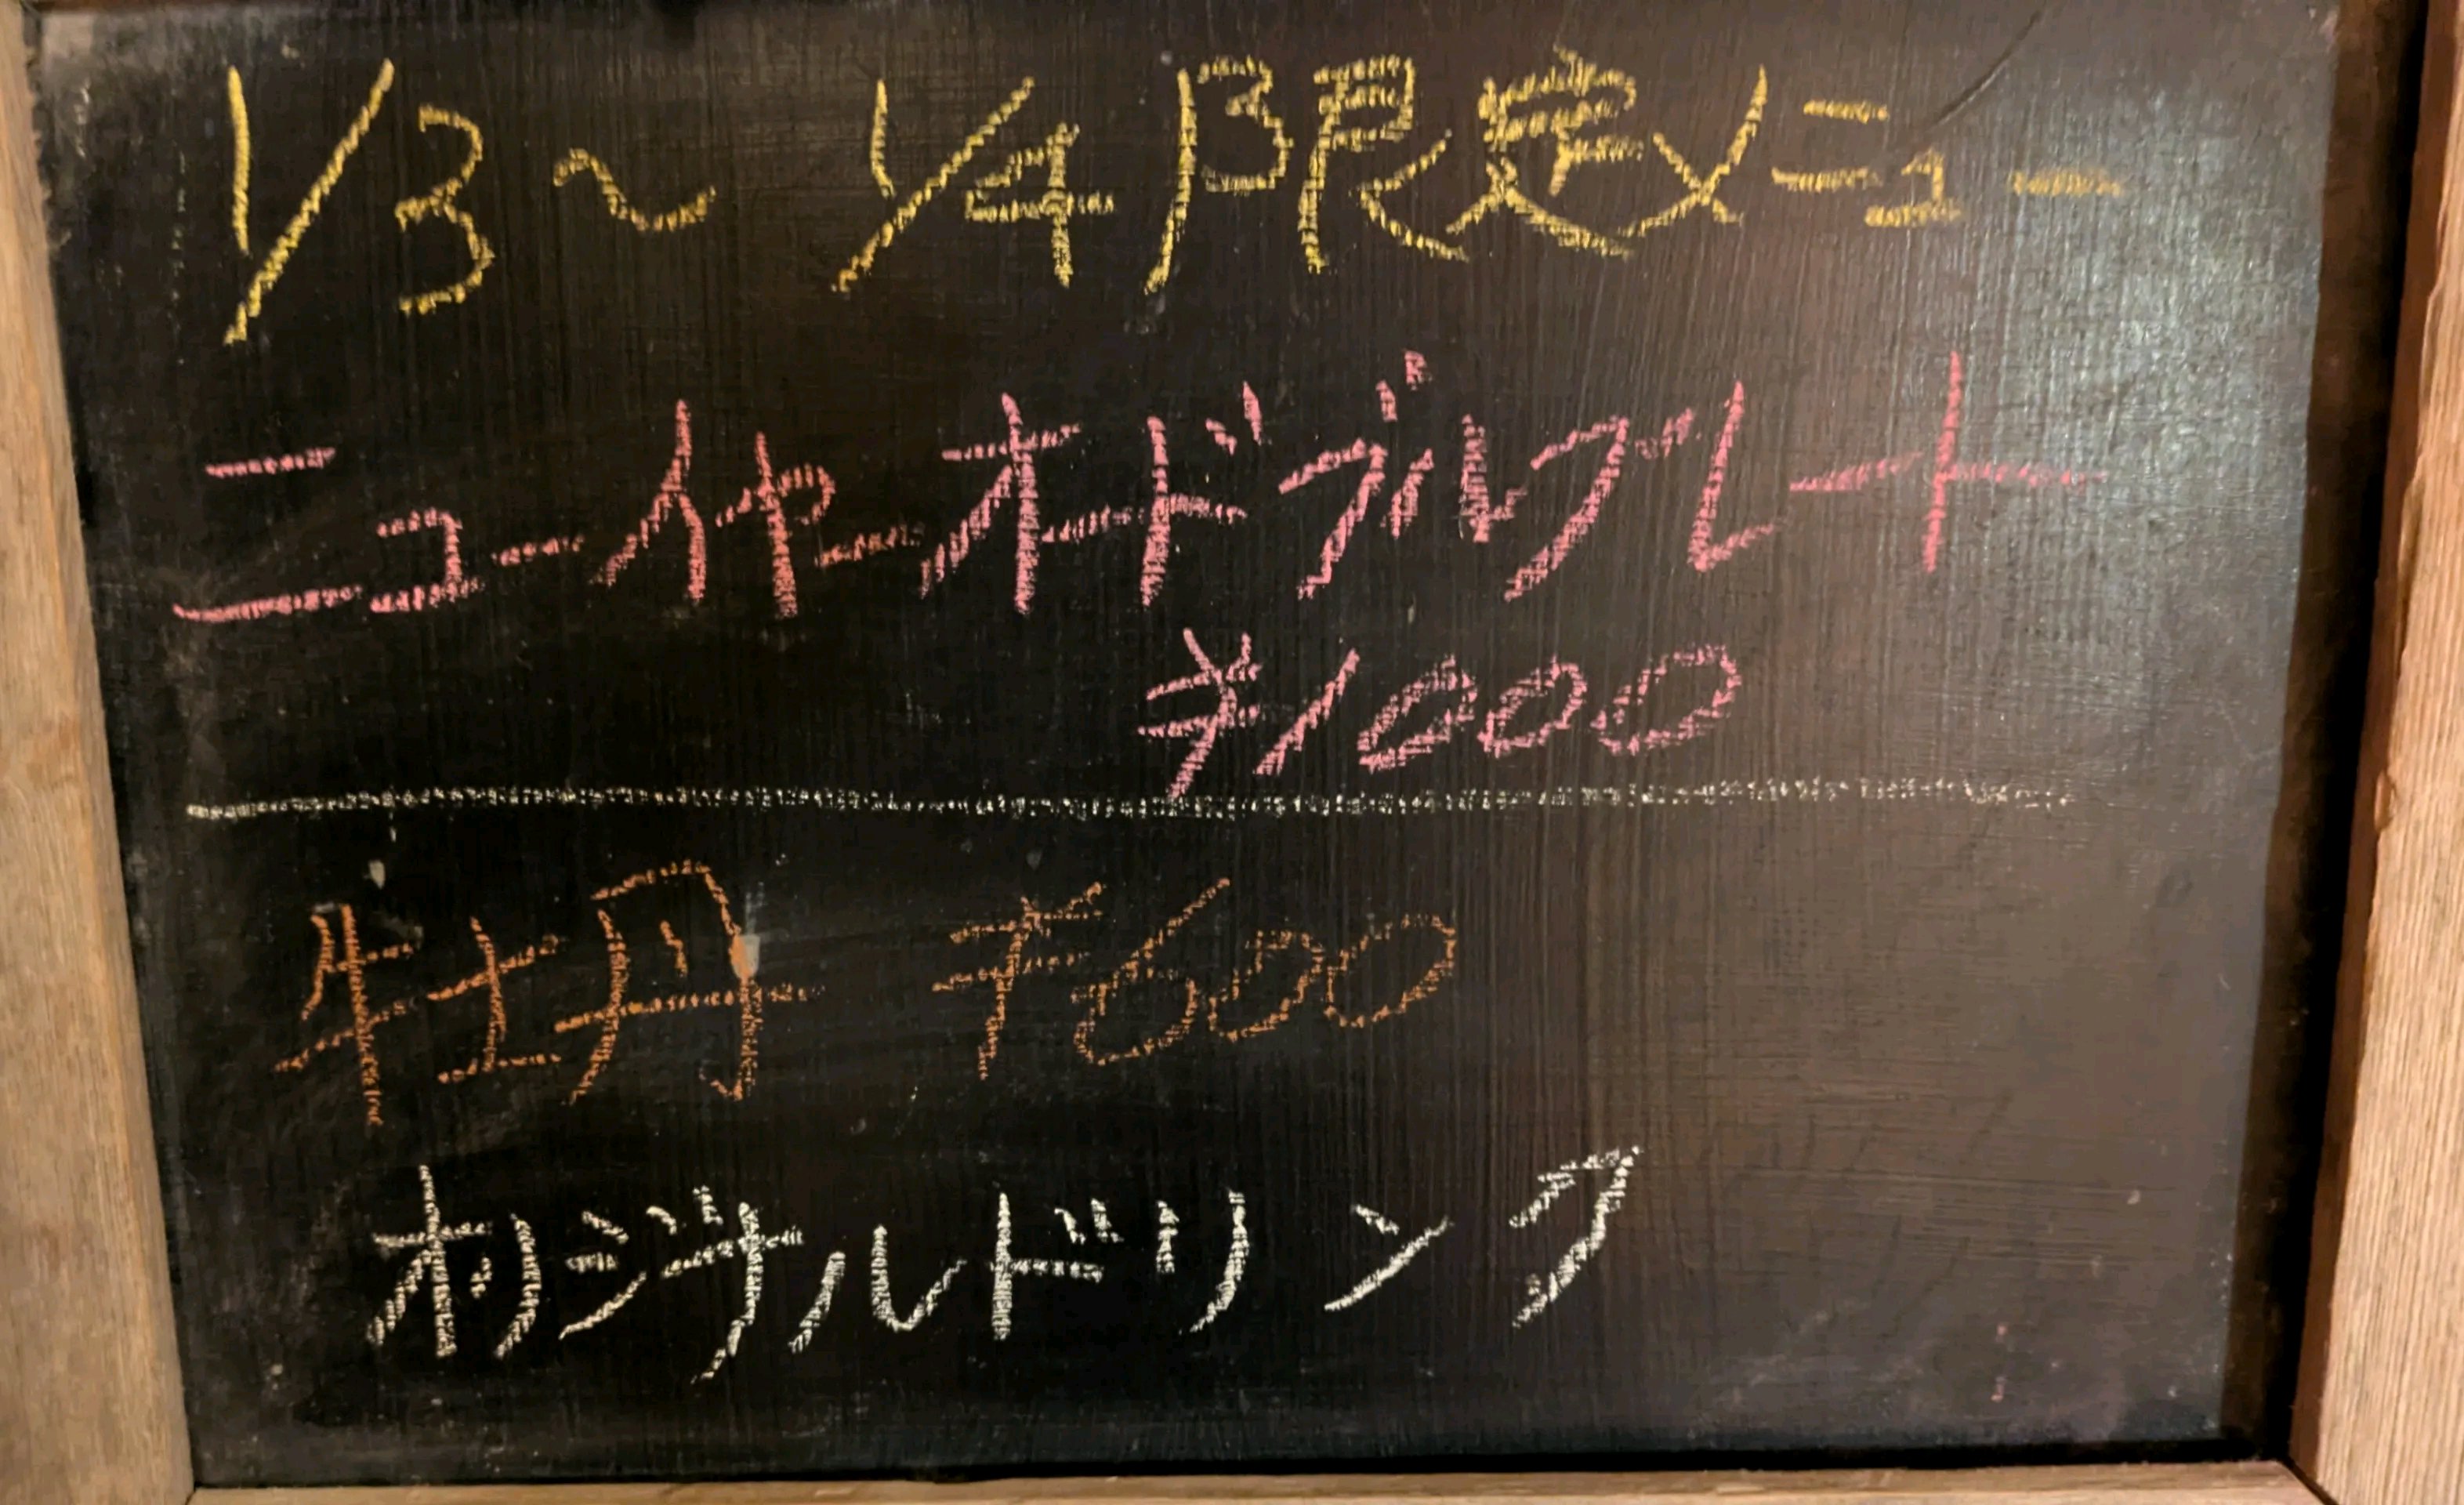 1/3～1/4限定メニュー
ニューイヤーオードブルプレート
¥1000
牡丹 ¥600
オリジナルドリンク